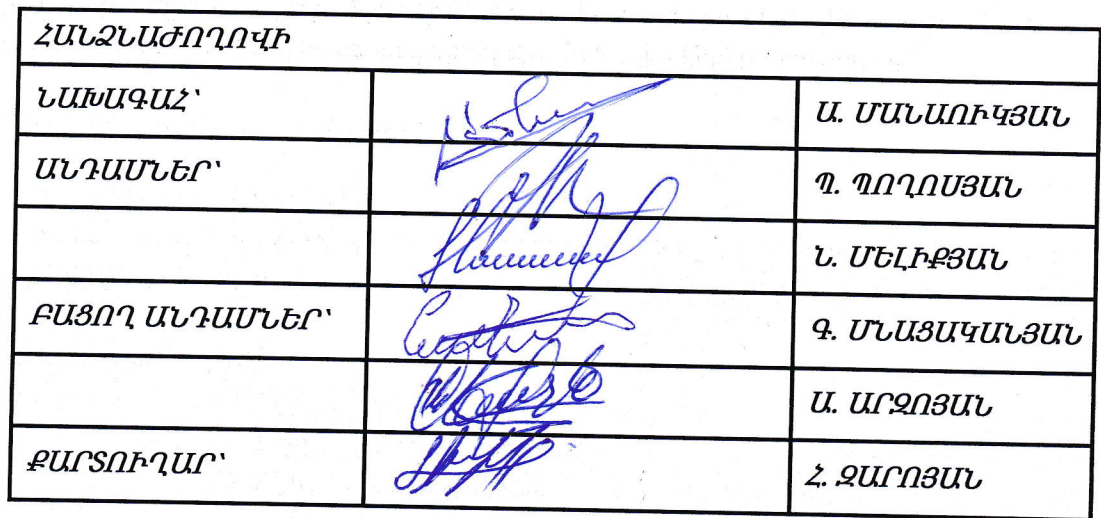 ՀԱՆՁՆԱԺՈՂՈՎԻ
ՆԱԽԱԳԱՀ՝ Ա. ՄԱՆԱՈՒԿՅԱՆ
ԱՆԴԱՄՆԵՐ՝ Պ. ՊՈՂՈՍՅԱՆ
Ն. ՄԵԼԻՔՅԱՆ
ԲԱՑՈՂ ԱՆԴԱՄՆԵՐ՝ Գ. ՄՆԱՑԱԿԱՆՅԱՆ
Ա. ԱՐԶՈՅԱՆ
ՔԱՐՏՈՒՂԱՐ՝ Հ. ԶԱՐՈՅԱՆ